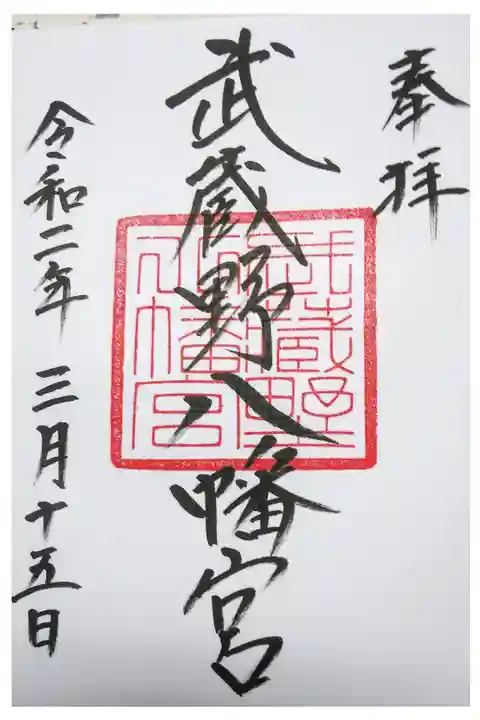 奉拝
武蔵野八幡宮
令和二年 三月十五日
武蔵野
八幡宮